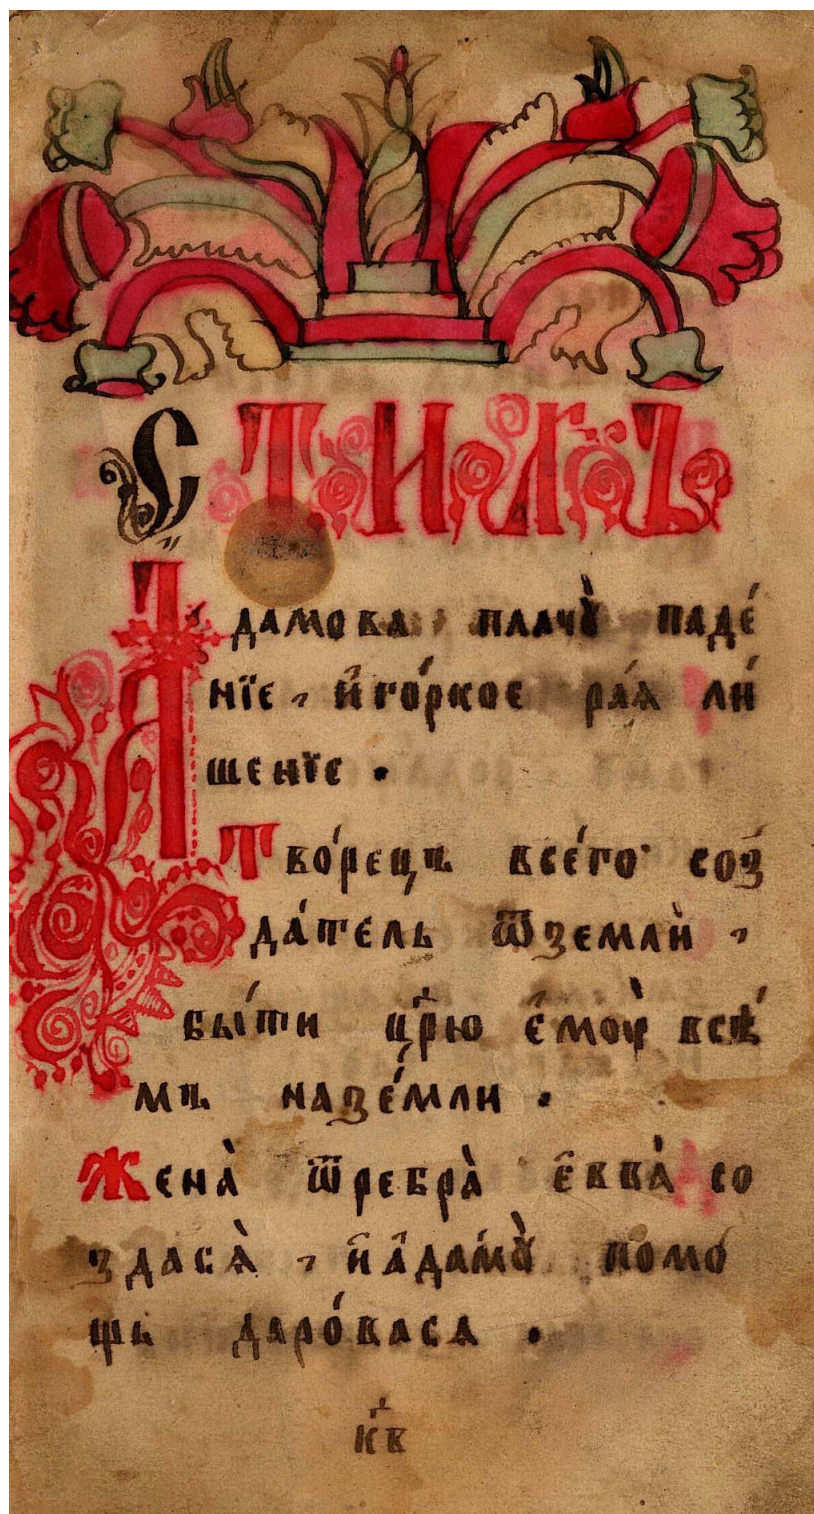 Стихъ
Адамова плачꙋ̀ паде́
нїе, и҆го́ркое ра́ѧ ли́
шенїе .
Тво́рецъ все́го соз̾
да́тель ѿземлѝ ,
бы́ти цр҃ю є҆моꙋ̀ всѣ́
мъ назе́мли .
Жена̀ ѿребра̀ є҆вва̀ со
здасѧ̀ , и҆а҆да́мꙋ̀ помо́
щь даро́васѧ .
к҃в